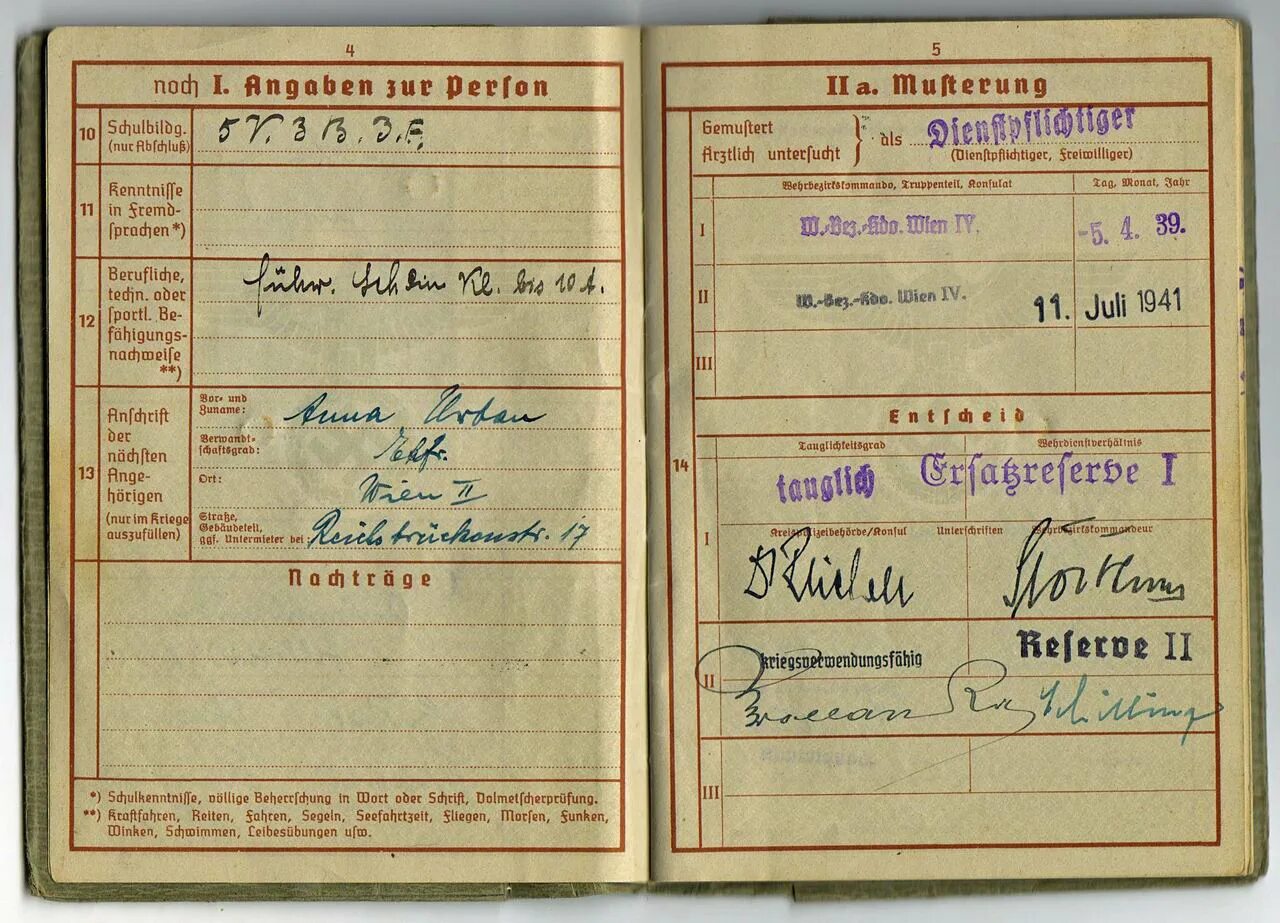 4
noch I. Angaben zur Person
10 Schulbildg. (nur Abschluß) 5 V. 3 B. 3. F.
11 Kenntnisse in Fremdsprachen *)
12 Berufliche, techn. oder sportl. Befähigungsnachweise **)
Führ. Schein Kl. bis 10 A.
13 Anschrift der nächsten Angehörigen (nur im Kriege auszufüllen)
Vor- und Zuname: Anna Urban
Verwandtschaftsgrad: Ehfr.
Ort: Wien II
Straße, Gebäudeteil, ggf. Untermieter bei: Reichsbrückenstr. 17
Nachträge
*) Schulkenntnisse, völlige Beherrschung in Wort oder Schrift, Dolmetscherprüfung.
**) Kraftfahren, Reiten, Fahren, Segeln, Seefahrtzeit, Fliegen, Morsen, Funken,
Winken, Schwimmen, Leibesübungen usw.
5
II a. Musterung
Gemustert
Ärztlich untersucht } als Dienstpflichtiger
(Dienstpflichtiger, Freiwilliger)
Wehrbezirkskommando, Truppenteil, Konsulat Tag, Monat, Jahr
I W.-Bez.-Kdo. Wien IV. -5. 4. 39.
II W.-Bez.-Kdo. Wien IV. 11. Juli 1941
III
Entscheid
14
Tauglichkeitsgrad Wehrdienstverhältnis
tauglich Ersatzreserve I
I Kreispolizeibehörde/Konsul Unterschriften Wehrbezirkskommandeur
II kriegsverwendungsfähig Reserve II
Schilling
III